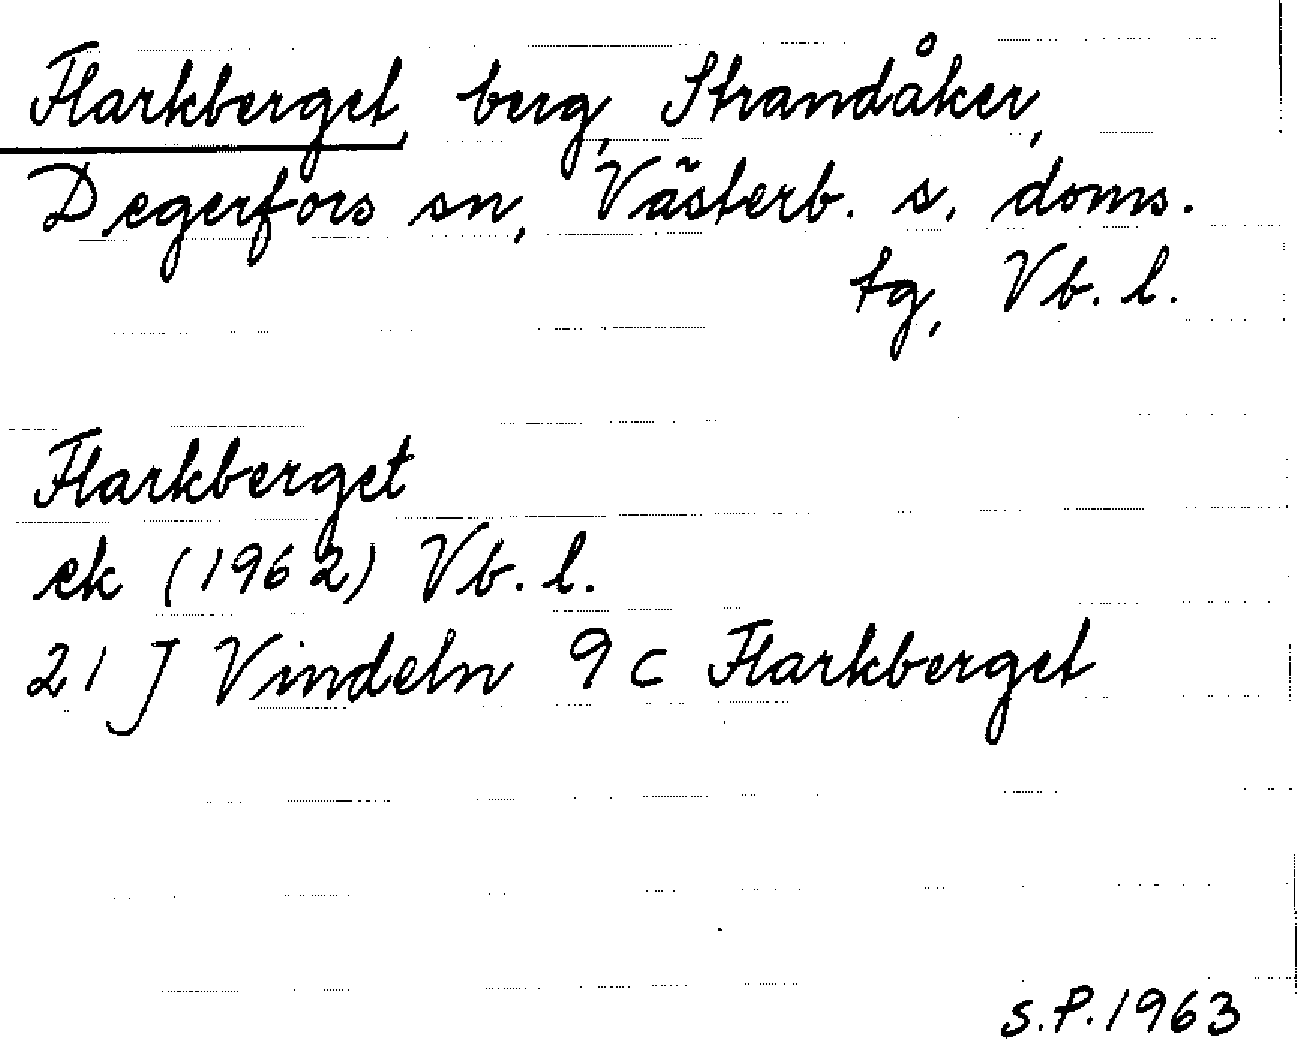 Flarkberget, berg, Strandåker,
Degerfors sn, Västerb. s. doms.
tg, Vb. l.
Flarkberget
ek (1962) Vb. l.
21 J Vindeln 9 c Flarkberget
S.P. 1963